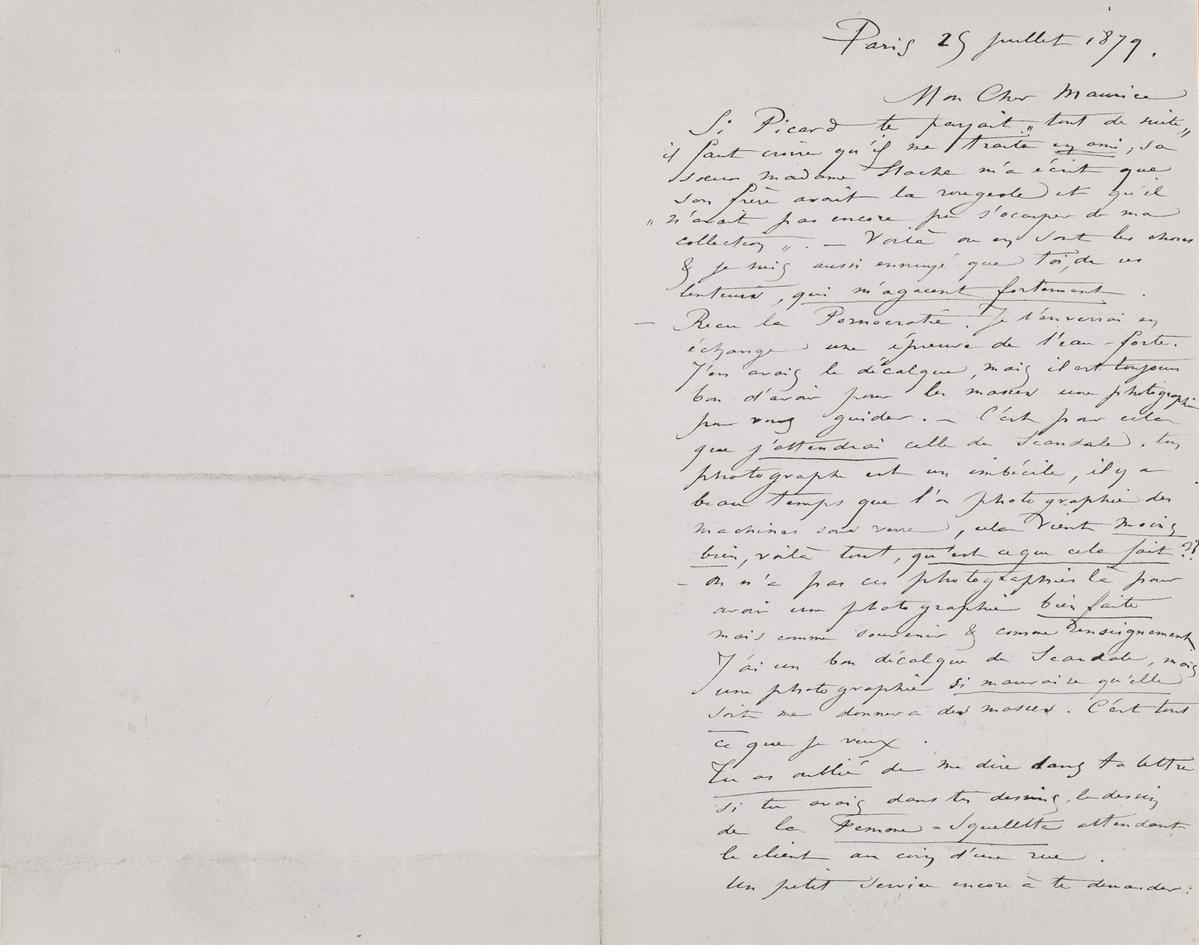 Paris 25 juillet 1879.
Mon Cher Maurice
Si Picard te payait „tout de suite„
il faut croire qu'il me traite en ami, sa
sœur madame Stache m'a écrit que
son frère avait la rougeole et qu'il
„n'avait pas encore pu s'occuper de ma
collection„. — Voilà ou en sont les choses
& je suis aussi ennuyé que toi, de ces
lenteurs, qui m'agacent fortement.
— Recu la Pornocratie. Je t'enverrai en
échange une épreuve de l'eau-forte.
J'en avais le décalque, mais il est toujours
bon d'avoir pour les masses une photographie
pour vous guider. — C'est pour cela
que j'attendrai celle du Scandale. ton
photographe est un imbécile, il y a
beau temps que l'on photographie des
machines sous verre, cela vient moins
bien, voilà tout, qu'est ce que cela fait??
— On n'a pas ces photographies là pour
avoir une photographie bien faite
mais comme souvenir & comme renseignement
J'ai un bon décalque du Scandale, mais
une photographie si mauvaise qu'elle
soit me donnera des masses. C'est tout
ce que je veux.
Tu as oublié de me dire dans ta lettre
si tu avais dans tes dessins le dessin
de la Femme-Squelette attendant
le client au coin d'une rue.
Un petit service encore à te demander: